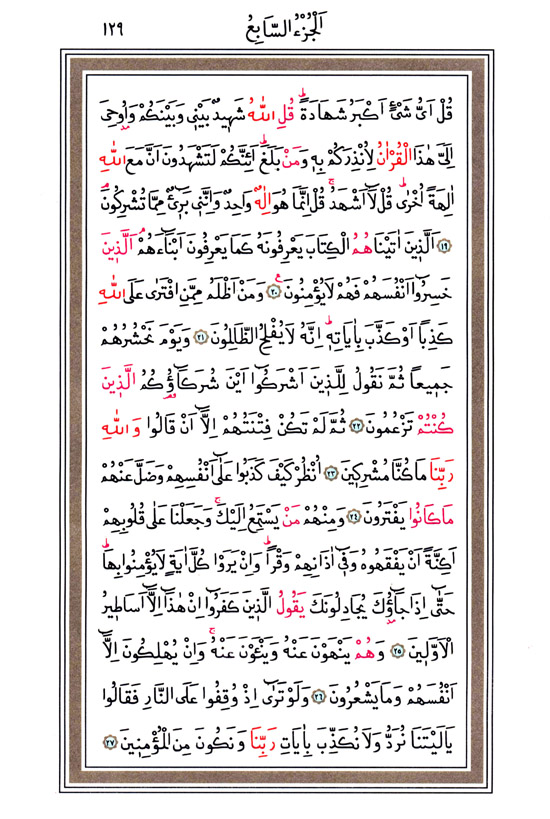 اَلْجُزْءُ السَّابِعُ
١٢٩
قُلْ اَىُّ شَىْءٍ اَكْبَرُ شَهَادَةًۜ قُلِ اللّٰهُ شَهٖيدٌ بَيْنٖى وَبَيْنَكُمْ وَاُوحِىَ
اِلَىَّ هٰذَا الْقُرْاٰنُ لِاُنْذِرَكُمْ بِهٖ وَمَنْ بَلَغَۜ اَئِنَّكُمْ لَتَشْهَدُونَ اَنَّ مَعَ اللّٰهِ
اٰلِهَةً اُخْرٰىۜ قُلْ لَٓا اَشْهَدُۚ قُلْ اِنَّمَا هُوَ اِلٰهٌ وَاحِدٌ وَاِنَّنٖى بَرٖٓىءٌ مِمَّا تُشْرِكُونَۢ
﴿١٩﴾ اَلَّذٖينَ اٰتَيْنَاهُمُ الْكِتَابَ يَعْرِفُونَهُ كَمَا يَعْرِفُونَ اَبْنَٓاءَهُمْۢ اَلَّذٖينَ
خَسِرُٓوا اَنْفُسَهُمْ فَهُمْ لَا يُؤْمِنُونَۚ ﴿٢٠﴾ وَمَنْ اَظْلَمُ مِمَّنِ افْتَرٰى عَلَى اللّٰهِ
كَذِبًا اَوْ كَذَّبَ بِاٰيَاتِهٖۜ اِنَّهُ لَا يُفْلِحُ الظَّالِمُونَ ﴿٢١﴾ وَيَوْمَ نَحْشُرُهُمْ
جَمٖيعًا ثُمَّ نَقُولُ لِلَّذٖينَ اَشْرَكُٓوا اَيْنَ شُرَكَٓاؤُ۬كُمُ الَّذٖينَ
كُنْتُمْ تَزْعُمُونَ ﴿٢٢﴾ ثُمَّ لَمْ تَكُنْ فِتْنَتُهُمْ اِلَّٓا اَنْ قَالُوا وَاللّٰهِ
رَبِّنَا مَا كُنَّا مُشْرِكٖينَ ﴿٢٣﴾ اُنْظُرْ كَيْفَ كَذَبُوا عَلٰٓى اَنْفُسِهِمْ وَضَلَّ عَنْهُمْ
مَا كَانُوا يَفْتَرُونَ ﴿٢٤﴾ وَمِنْهُمْ مَنْ يَسْتَمِعُ اِلَيْكَۚ وَجَعَلْنَا عَلٰى قُلُوبِهِمْ
اَكِنَّةً اَنْ يَفْقَهُوهُ وَفٖٓى اٰذَانِهِمْ وَقْرًاۜ وَاِنْ يَرَوْا كُلَّ اٰيَةٍ لَا يُؤْمِنُوا بِهَاۜ
حَتّٰٓى اِذَا جَٓاؤُ۫كَ يُجَادِلُونَكَ يَقُولُ الَّذٖينَ كَفَرُٓوا اِنْ هٰذَٓا اِلَّٓا اَسَاطٖيرُ
الْاَوَّلٖينَ ﴿٢٥﴾ وَهُمْ يَنْهَوْنَ عَنْهُ وَيَنْـَٔوْنَ عَنْهُۚ وَاِنْ يُهْلِكُونَ اِلَّٓا
اَنْفُسَهُمْ وَمَا يَشْعُرُونَ ﴿٢٦﴾ وَلَوْ تَرٰٓى اِذْ وُقِفُوا عَلَى النَّارِ فَقَالُوا
يَا لَيْتَنَا نُرَدُّ وَلَا نُكَذِّبَ بِاٰيَاتِ رَبِّنَا وَنَكُونَ مِنَ الْمُؤْمِنٖينَ ﴿٢٧﴾